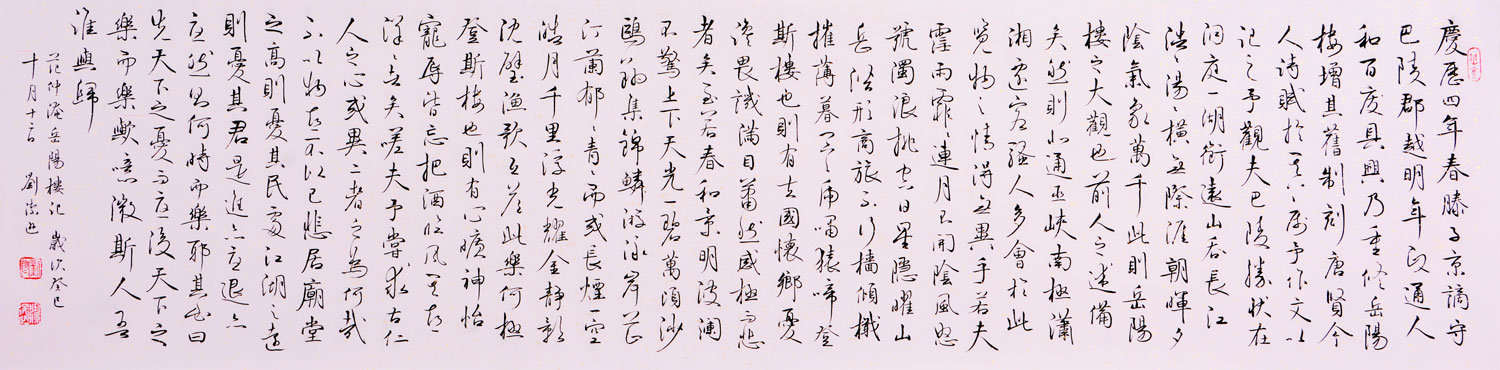 慶歷四年春滕子京謫守
巴陵郡越明年政通人
和百廢具興乃重修岳陽
樓增其舊制刻唐賢今
人詩賦於其上屬予作文以
記之予觀夫巴陵勝狀在
洞庭一湖銜遠山吞長江
浩浩湯湯橫無際涯朝暉夕
陰氣象萬千此則岳陽
樓之大觀也前人之述備
矣然則北通巫峽南極瀟
湘遷客騷人多會於此
覽物之情得無異乎若夫
霪雨霏霏連月不開陰風怒
號濁浪排空日星隱曜山
岳潛形商旅不行檣傾楫
摧薄暮冥冥虎嘯猿啼登
斯樓也則有去國懷鄉憂
讒畏譏滿目蕭然感極而悲
者矣至若春和景明波瀾
不驚上下天光一碧萬頃沙
鷗翔集錦鱗游泳岸芷
汀蘭郁郁青青而或長煙一空
皓月千里浮光耀金靜影
沈璧漁歌互答此樂何極
登斯樓也則有心曠神怡
寵辱皆忘把酒臨風其喜
洋洋者矣嗟夫予嘗求古仁
人之心或異二者之為何哉
不以物喜不以己悲居廟堂
之高則憂其民處江湖之遠
則憂其君是進亦憂退亦
憂然則何時而樂耶其必曰
先天下之憂而憂後天下之
樂而樂歟噫微斯人吾
誰與歸
范仲淹岳陽樓記 歲次癸巳
十月十六日 劉